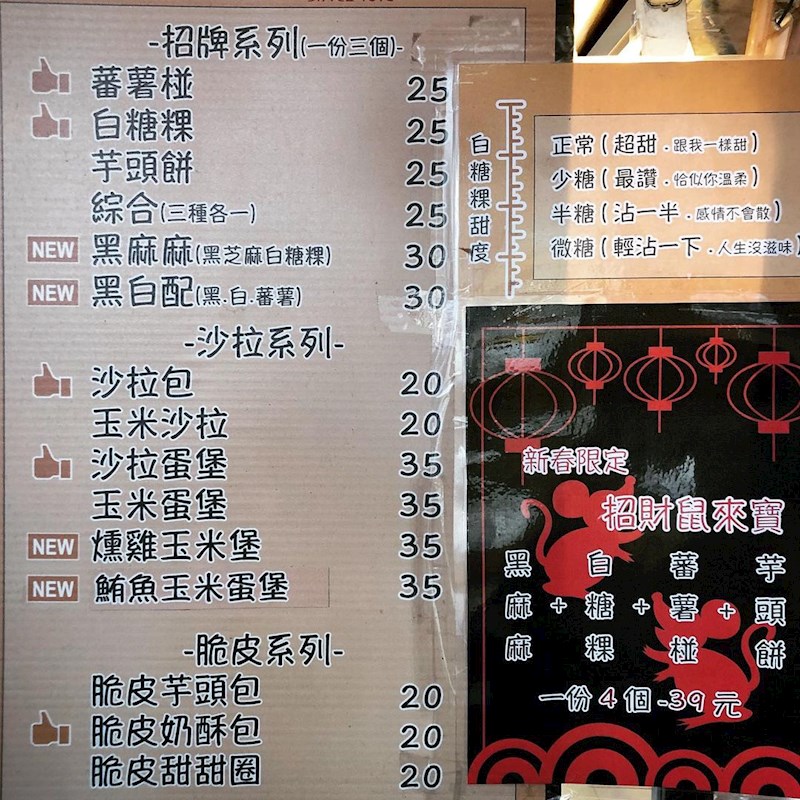 -招牌系列(一份三個)-
蕃薯椪 25
白糖粿 25
芋頭餅 25
綜合(三種各一) 25
NEW 黑麻麻(黑芝麻白糖粿) 30
NEW 黑白配(黑.白.蕃薯) 30
-沙拉系列-
沙拉包 20
玉米沙拉 20
沙拉蛋堡 35
玉米蛋堡 35
NEW 燻雞玉米堡 35
NEW 鮪魚玉米蛋堡 35
-脆皮系列-
脆皮芋頭包 20
脆皮奶酥包 20
脆皮甜甜圈 20
白糖粿甜度
正常(超甜.跟我一樣甜)
少糖(最讚.恰似你溫柔)
半糖(沾一半.感情不會散)
微糖(輕沾一下.人生沒滋味)
新春限定
招財鼠來寶
黑麻麻+白糖粿+蕃薯椪+芋頭餅
一份4個-39元